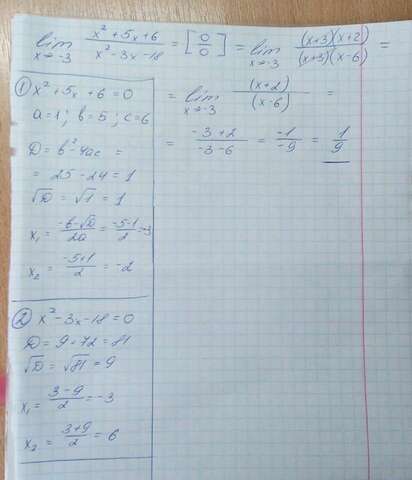 lim x→-3 (x²+5x+6)/(x²-3x-18) = [0/0] = lim x→-3 ((x+3)(x+2))/((x+3)(x-6)) =
= lim x→-3 (x+2)/(x-6) =
= (-3+2)/(-3-6) = -1/-9 = 1/9
① x²+5x+6=0
a=1; b=5; c=6
D=b²-4ac =
= 25-24=1
√D=√1=1
x₁= (-b-√D)/2a = (-5-1)/2 = -3
x₂= (-5+1)/2 = -2
② x²-3x-18=0
D=9+72=81
√D=√81=9
x₁= (3-9)/2 = -3
x₂= (3+9)/2 = 6